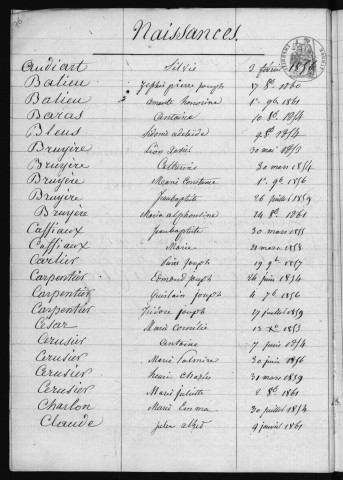 Naissances
Audiart Silvie 2 février 1856
Balieu Joseph pierre joseph 17 8b. 1860
Balieu amante honorine 1er 9b 1861
Baras Antoine 10 8b. 1854
Bleus adelaïde 9 8b 1854
Bruyère léon Xavier 30 mai 1853
Bruyère Catherine 30 mars 1854
Bruyère Marie Constance 1er 9b 1856
Bruyère Jeanbaptiste 26 juillet 1859
Bruyère Maria alphonsine 24 8b 1861
Caffiaux Jeanbaptiste 30 mars 1855
Caffiaux Marie 21 mars 1858
Carlier joseph 19 9b 1857
Carpentier Edmond joseph 24 juin 1854
Carpentier Guislain joseph 4 7b 1856
Carpentier Isidore joseph 17 juillet 1859
César Marie Cornélie 13 Xb 1853
Cerusier Antoine 7 juin 1854
Cerusier Marie Palmire 30 juin 1856
Cerusier henri Charles 31 mars 1859
Cerusier Marie Juliette 2 8b 1861
Charlon Marie Emma 30 juillet 1854
Claude jules alfred 4 janvier 1861